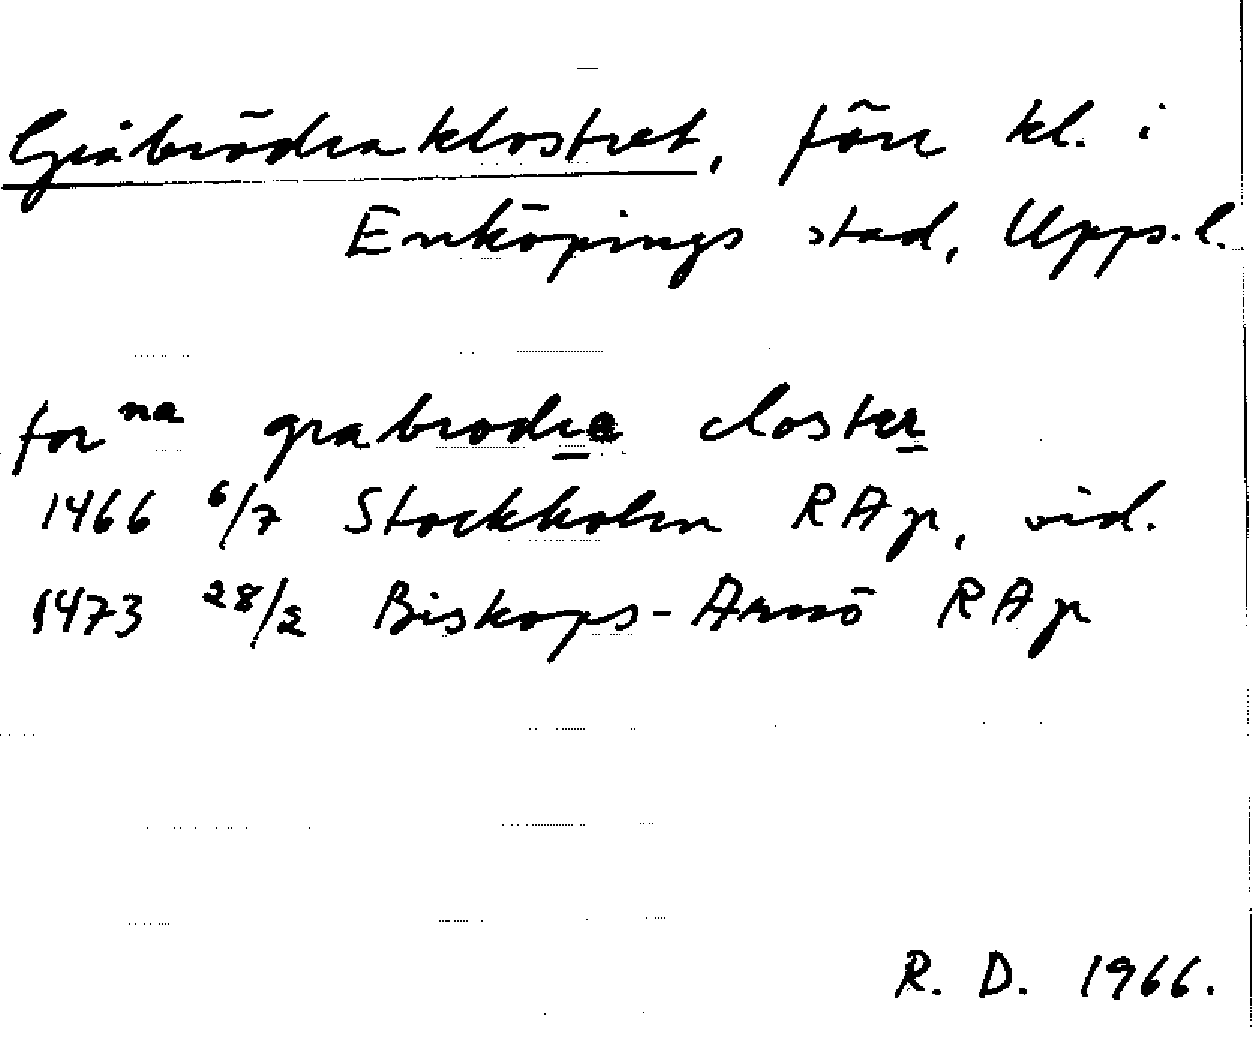 Gråbrödraklostret, förr kl. i
Enköpings stad, Upps. l.
for na grabrodra closter
1466 6/7 Stockholm RAp, vid.
1473 28/2 Biskops-Arnö RAp
R. D. 1966.